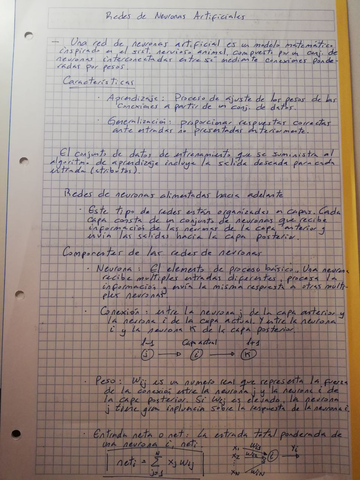 Redes de Neuronas Artificiales
- Una red de neuronas artificial es un modelo matemático
inspirado en el sist. nervioso animal, compuesto por un conj. de
neuronas interconectadas entre sí mediante conexiones ponde-
radas por pesos.
Características
· Aprendizaje: Proceso de ajuste de los pesos de las
conexiones a partir de un conj. de datos.
· Generalización: proporcionar respuestas correctas
ante entradas no presentadas anteriormente.
El conjunto de datos de entrenamiento que se suministra al
algoritmo de aprendizaje incluye la salida deseada para cada
entrada (atributos).
Redes de neuronas alimentadas hacia adelante
· Este tipo de redes están organizadas en capas. Cada
capa consta de un conjunto de neuronas que recibe
información de las neuronas de la capa anterior y
envía las salidas hacia la capa posterior.
Componentes de las redes de neuronas
· Neurona: El elemento de proceso básico. Una neurona
recibe multiples entradas diferentes, procesa la
información y envía la misma respuesta a otras multi-
ples neuronas.
· Conexión: entre la neurona j de la capa anterior y
la neurona i de la capa actual. Y entre la neurona
i y la neurona K de la capa posterior.
j → i → K
· Peso: Wij es un numero real que representa la fuerza
de la conexión entre la neurona j y la neurona i de
la capa posterior. Si Wij es elevado, la neurona
j tiene gran influencia sobre la respuesta de la neurona i.
· Entrada neta o net: La entrada total ponderada de
una neurona i, neti
neti = Σ xj wij